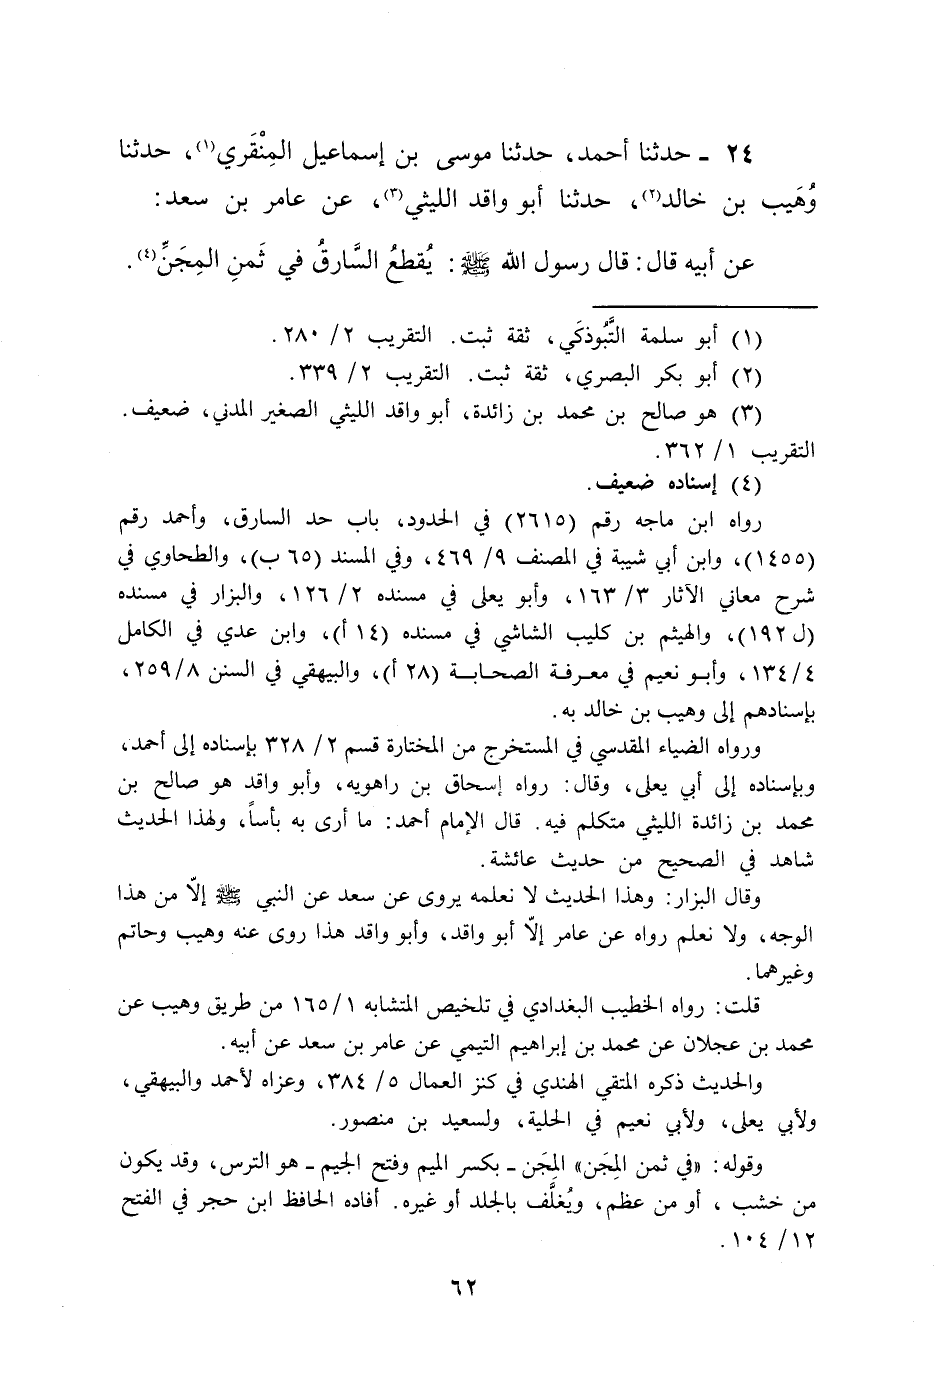 ٢٤ ـ حدثنا أحمد، حدثنا موسى بن إسماعيل المِنْقَري(١)، حدثنا
وُهَيب بن خالد(٢)، حدثنا أبو واقد الليثي(٣)، عن عامر بن سعد:
عن أبيه قال: قال رسول الله ﷺ: يُقطعُ السَّارقُ في ثَمنِ المِجَنِّ(٤).
(١) أبو سلمة التَّبُوذكَي، ثقة ثبت. التقريب ٢/ ٢٨٠.
(٢) أبو بكر البصري، ثقة ثبت. التقريب ٢/ ٣٣٩.
(٣) هو صالح بن محمد بن زائدة، أبو واقد الليثي الصغير المدني، ضعيف.
التقريب ١/ ٣٦٢.
(٤) إسناده ضعيف.
رواه ابن ماجه رقم (٢٦١٥) في الحدود، باب حد السارق، وأحمد رقم
(١٤٥٥)، وابن أبي شيبة في المصنف ٩/ ٤٦٩، وفي المسند (٦٥ ب)، والطحاوي في
شرح معاني الآثار ٣/ ١٦٣، وأبو يعلى في مسنده ٢/ ١٢٦، والبزار في مسنده
(ل ١٩٢)، والهيثم بن كليب الشاشي في مسنده (١٤ أ)، وابن عدي في الكامل
٤/ ١٣٤، وأبـو نعيم في معـرفـة الصحـابـة (٢٨ أ)، والبيهقي في السنن ٨/ ٢٥٩،
بإسنادهم إلى وهيب بن خالد به.
ورواه الضياء المقدسي في المستخرج من المختارة قسم ٢/ ٣٢٨ بإسناده إلى أحمد،
وبإسناده إلى أبي يعلى، وقال: رواه إسحاق بن راهويه، وأبو واقد هو صالح بن
محمد بن زائدة الليثي متكلم فيه. قال الإمام أحمد: ما أرى به بأساً، ولهذا الحديث
شاهد في الصحيح من حديث عائشة.
وقال البزار: وهذا الحديث لا نعلمه يروى عن سعد عن النبي ﷺ إلّا من هذا
الوجه، ولا نعلم رواه عن عامر إلّا أبو واقد، وأبو واقد هذا روى عنه وهيب وحاتم
وغيرهما.
قلت: رواه الخطيب البغدادي في تلخيص المتشابه ١/ ١٦٥ من طريق وهيب عن
محمد بن عجلان عن محمد بن إبراهيم التيمي عن عامر بن سعد عن أبيه.
والحديث ذكره المتقي الهندي في كنز العمال ٥/ ٣٨٤، وعزاه لأحمد والبيهقي،
ولأبي يعلى، ولأبي نعيم في الحلية، ولسعيد بن منصور.
وقوله: «في ثمن المِجَن» المِجَن ـ بكسر الميم وفتح الجيم ـ هو الترس، وقد يكون
من خشب ، أو من عظم، ويُغلَّف بالجلد أو غيره. أفاده الحافظ ابن حجر في الفتح
١٢/ ١٠٤.
٦٢